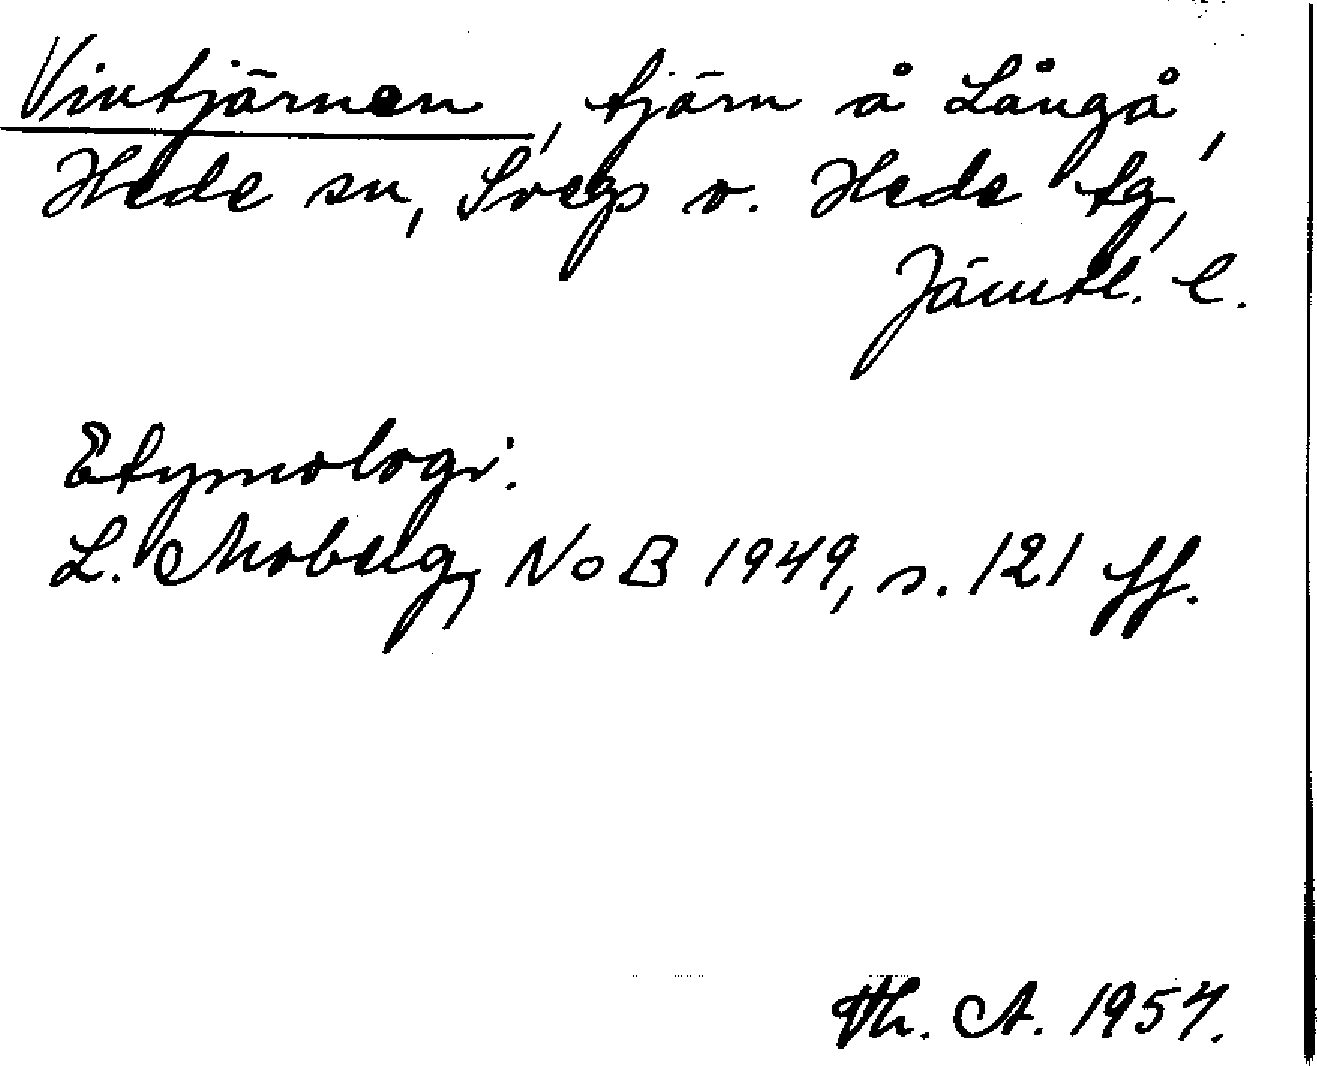 Vintjärnen, tjärn å Långå,
Hede sn, Svegs o. Hede tg,
Jämtl. l.
Etymologi.
L. Moberg, NoB 1949, s. 121 ff.
Th. A. 1957.